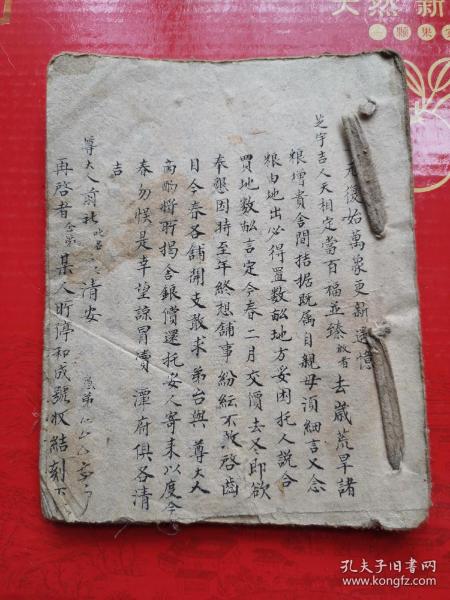 天然 新
一颗果
元復始萬象更新遥憶
芝宇吉人天相定當百福並臻敬者去歲荒旱諸
粮增貴舍間拮据既属自親毋須細言又念
粮由地出必得置数畝地方妥困托人説合
買地数畝言定今春二月交價去冬即欲
奉懇因時至年終想舖事紛紜不敢啓齒
目今春各舖開支敢求 弟台與 尊大人
商酌将所揭舍銀償還托妥人寄来以度今
春勿悮是幸望諒冒凟 潭府俱各清
吉
尊大人前祈 清安
再啓者 某人所停和成號收結刻下
孔夫子旧书网
www.kongfz.com